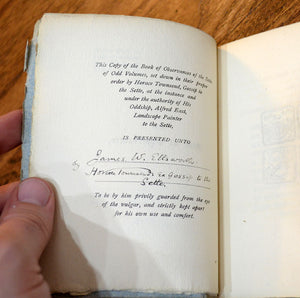 This Copy of the Book of Observances of the Sette
of Odd Volumes, set down in their proper
order by Horace Townsend, Gossip to
the Sette, at the instance and
under the authority of His
Oddship, Alfred East,
Landscape Painter
to the Sette,
IS PRESENTED UNTO
James W. Ellsworth
by Horace Townsend, Gossip to the
Sette,
To be by him privily guarded from the eye
of the vulgar, and strictly kept apart
for his own use and comfort.